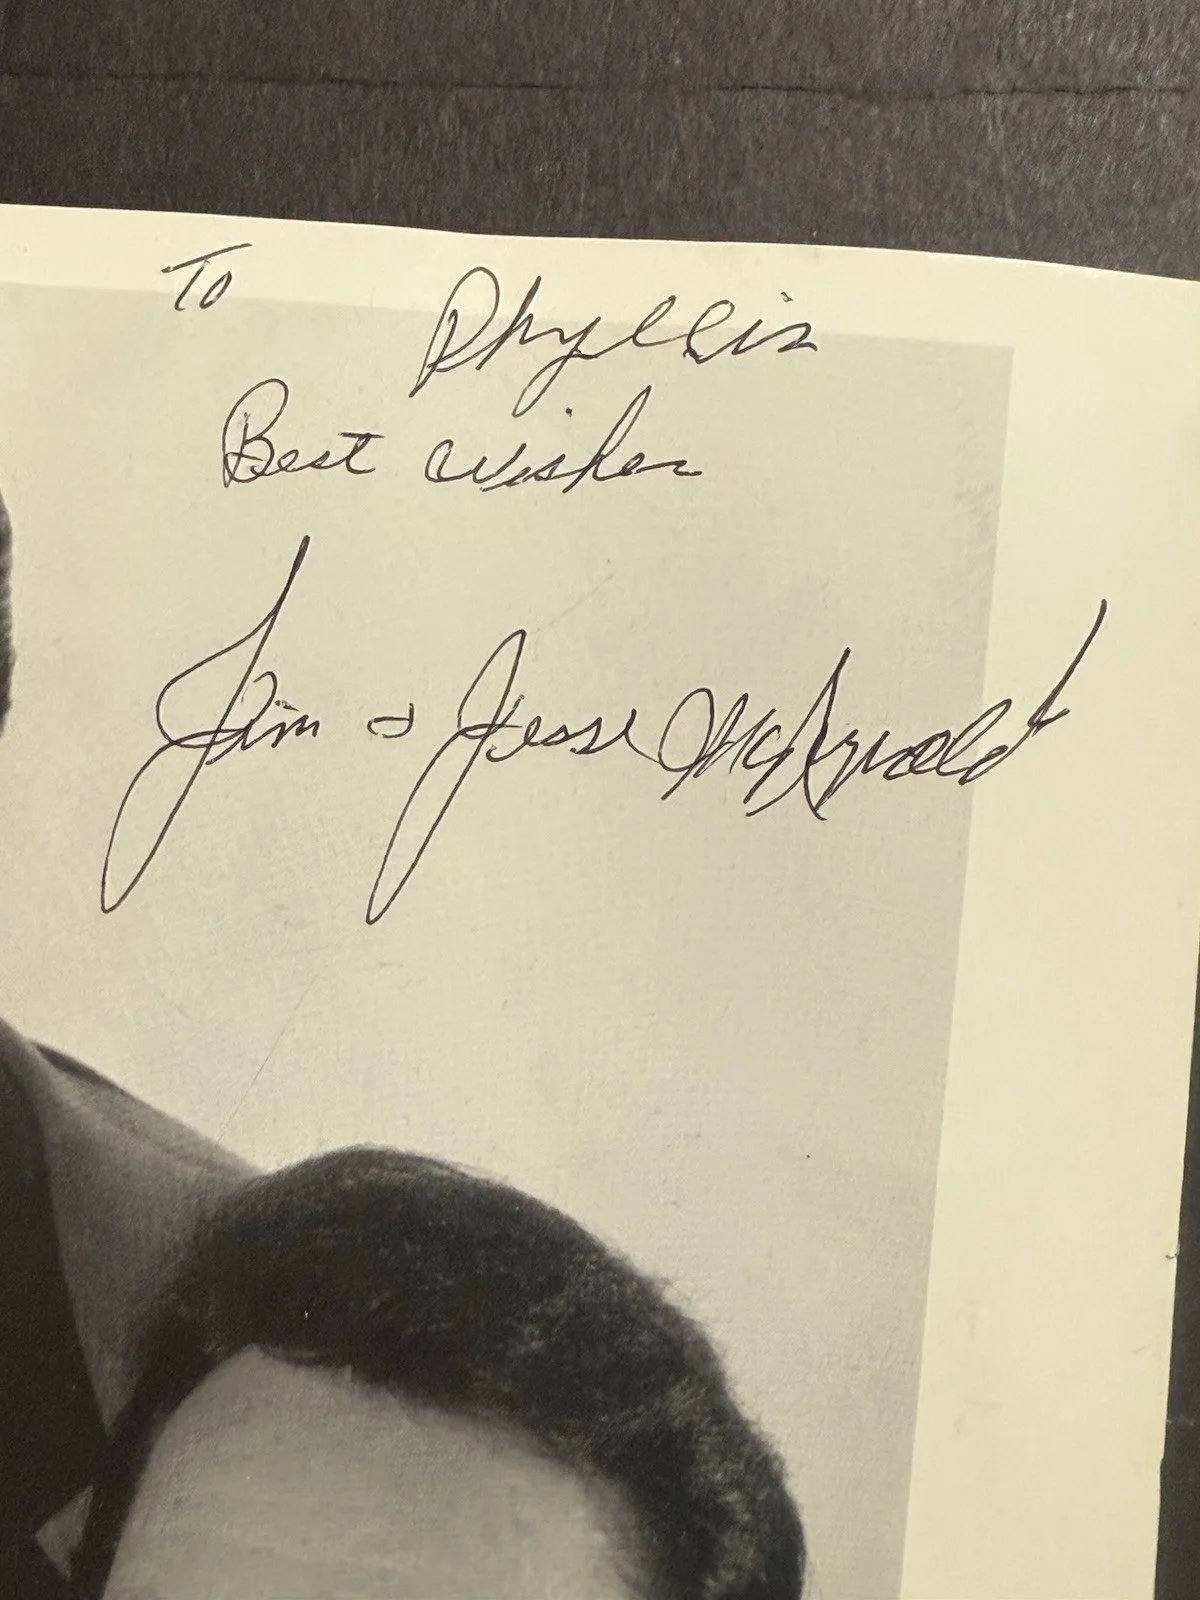 To Phyllis
Best wishes
Jim & Jesse McReynolds